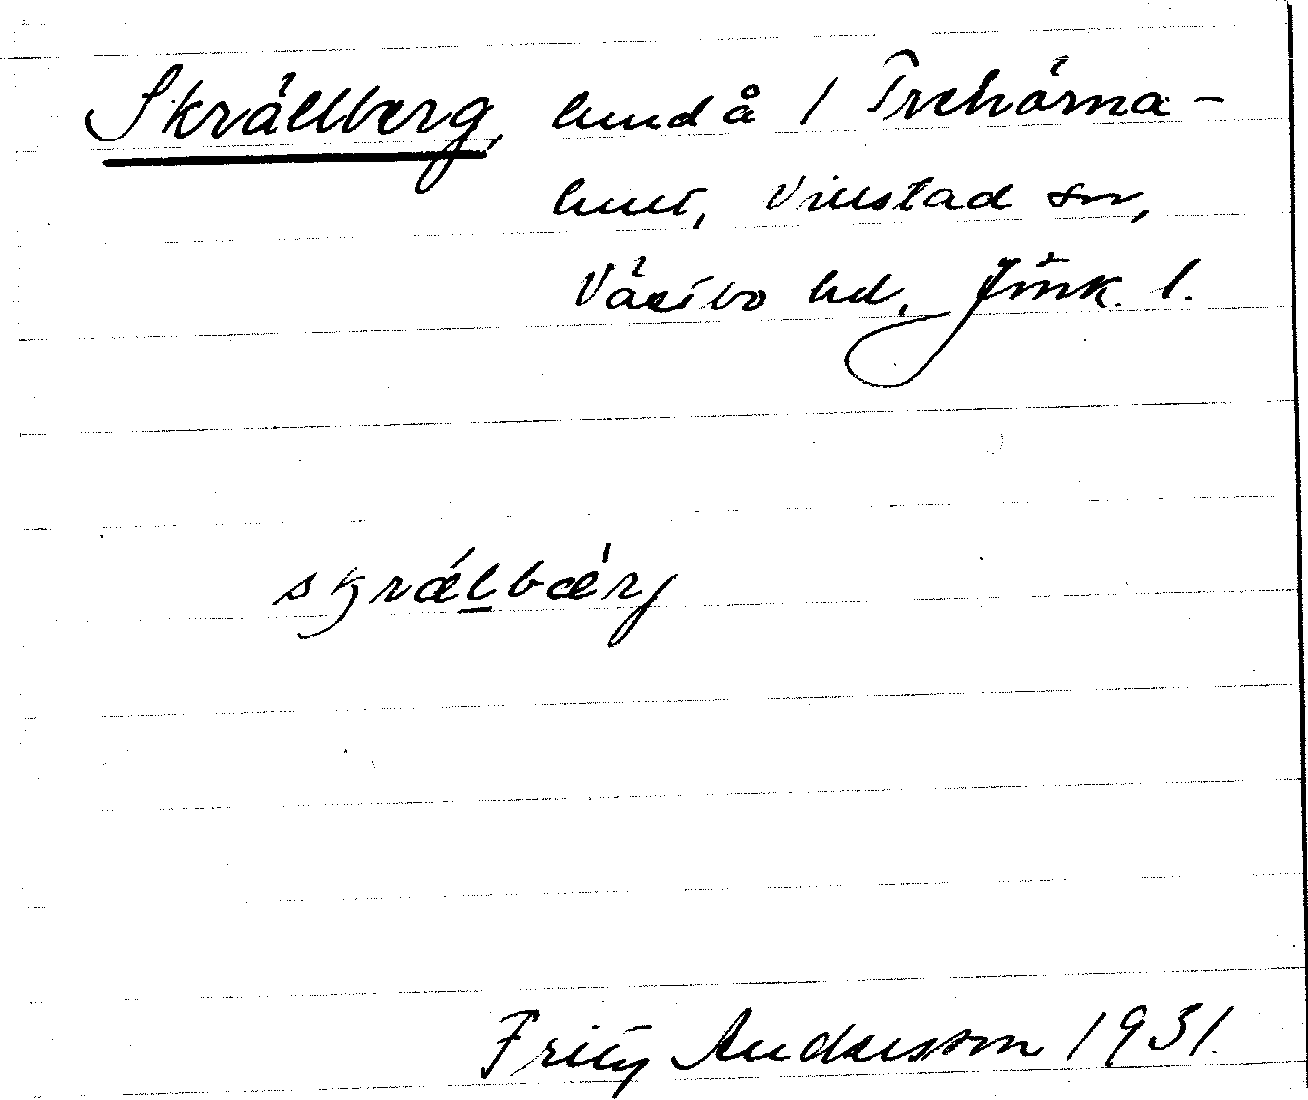 Skrällberg, hmd å 1 Trehörna-
hult, Villstad sn,
Västbo hd, Jönk. l.
skrælbærj
Fritz Andersson 1931.